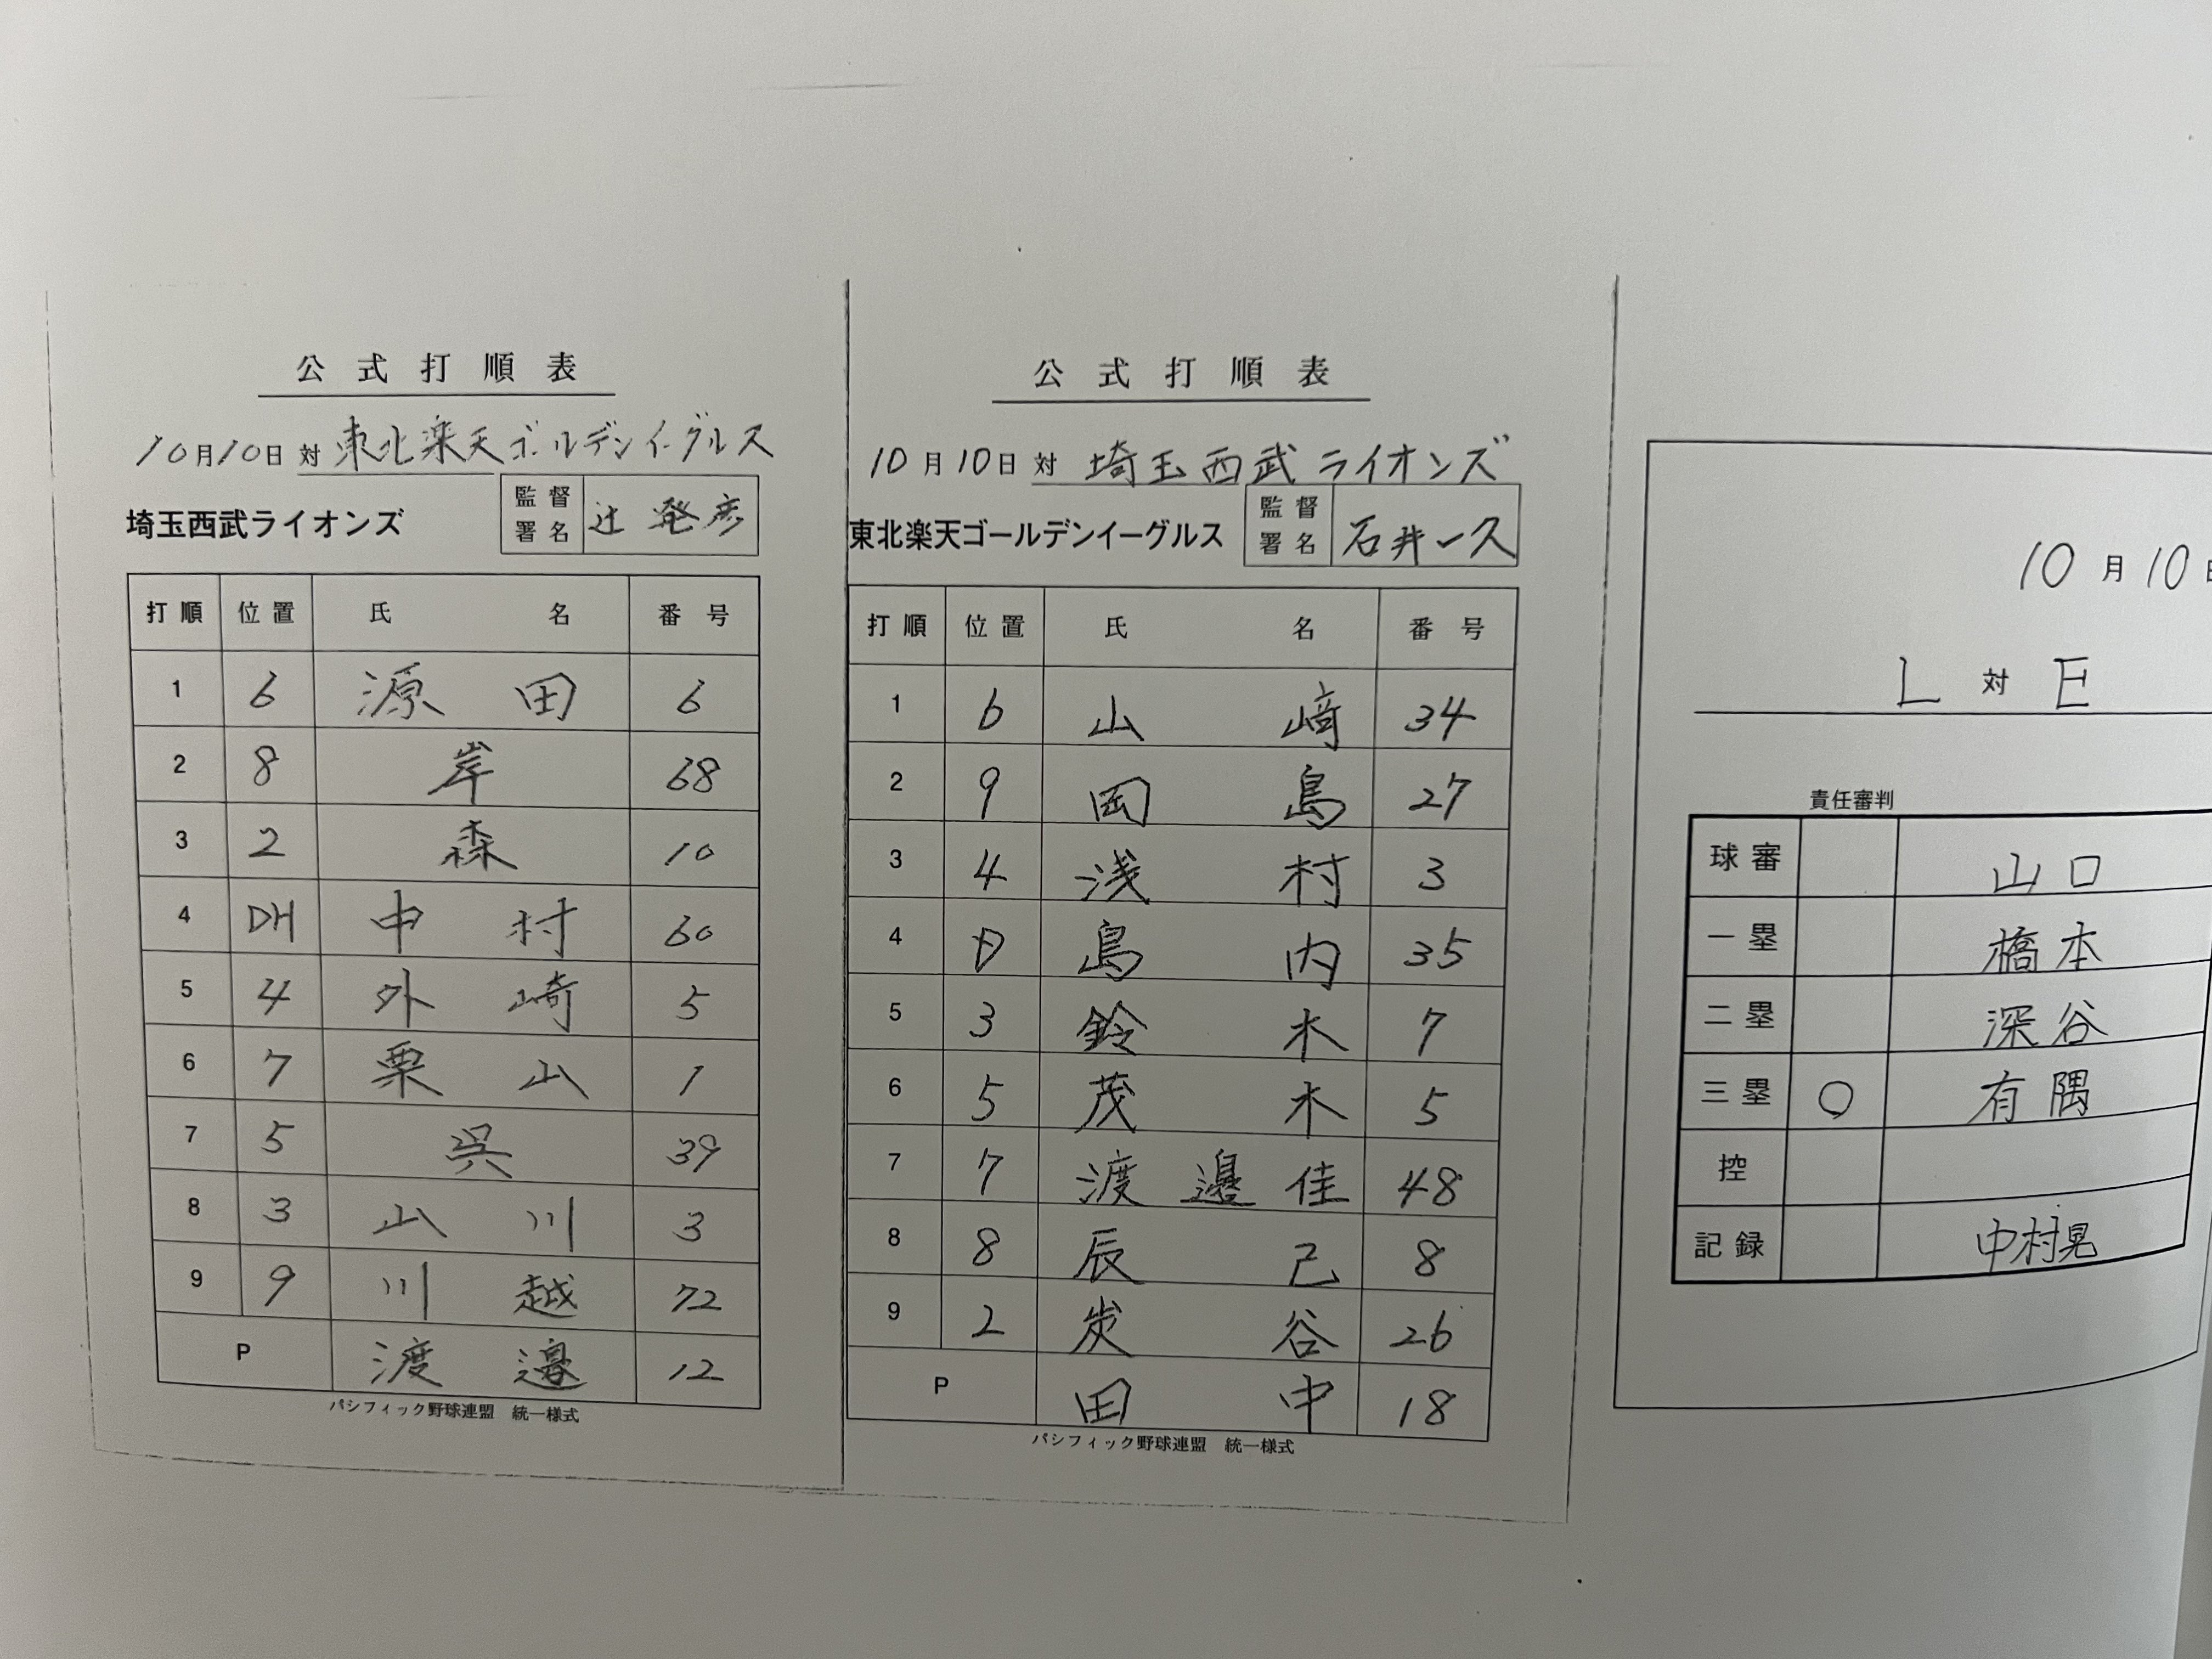 公式打順表
10月10日 対 東北楽天ゴールデンイーグルス
埼玉西武ライオンズ 監督署名 辻発彦
打順 位置 氏名 番号
1 6 源田 6
2 8 岸 68
3 2 森 10
4 DH 中村 60
5 4 外崎 5
6 7 栗山 1
7 5 呉 39
8 3 山川 3
9 9 川越 72
P 渡邉 12
パシフィック野球連盟 統一様式
公式打順表
10月10日 対 埼玉西武ライオンズ
東北楽天ゴールデンイーグルス 監督署名 石井一久
打順 位置 氏名 番号
1 6 山﨑 34
2 9 岡島 27
3 4 浅村 3
4 D 島内 35
5 3 鈴木 7
6 5 茂木 5
7 7 渡邊佳 48
8 8 辰己 8
9 2 炭谷 26
P 田中 18
パシフィック野球連盟 統一様式
10月10日
L 対 E
責任審判
球審 山口
一塁 橋本
二塁 深谷
三塁 ○ 有隅
控
記録 中村晃